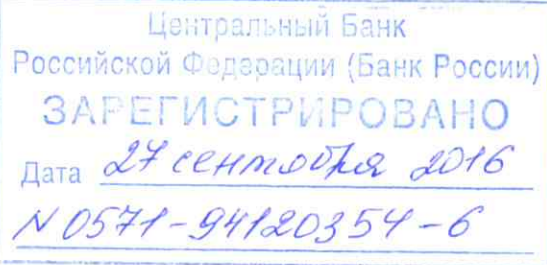 Центральный Банк
Российской Федерации (Банк России)
ЗАРЕГИСТРИРОВАНО
Дата 27 сентября 2016
N 0571-94120354-6